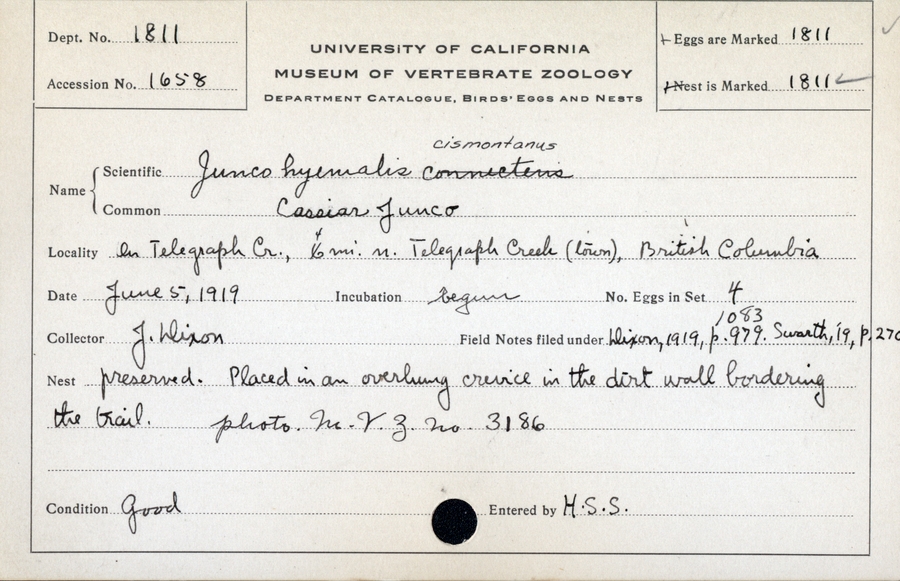 Dept. No. 1811
Accession No. 1658
UNIVERSITY OF CALIFORNIA
MUSEUM OF VERTEBRATE ZOOLOGY
DEPARTMENT CATALOGUE, BIRDS' EGGS AND NESTS
Eggs are Marked 1811
Nest is Marked 1811
cismontanus
Name Scientific Junco hyemalis connectens
Common Cassiar Junco
Locality On Telegraph Cr., 4 mi. n. Telegraph Creek (town), British Columbia
Date June 5, 1919 Incubation begun No. Eggs in Set 4
1083
Collector J. Dixon Field Notes filed under Dixon, 1919, p. 979. Swarth, 19, p. 270
Nest preserved. Placed in an overhung crevice in the dirt wall bordering
the trail. photo. M.V.Z. no. 3186
Condition Good Entered by H.S.S.